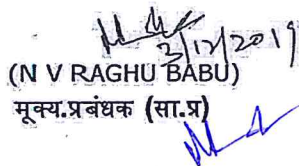 3/12/2019
(N V RAGHU BABU)
मूक्य.प्रबंधक (सा.प्र)